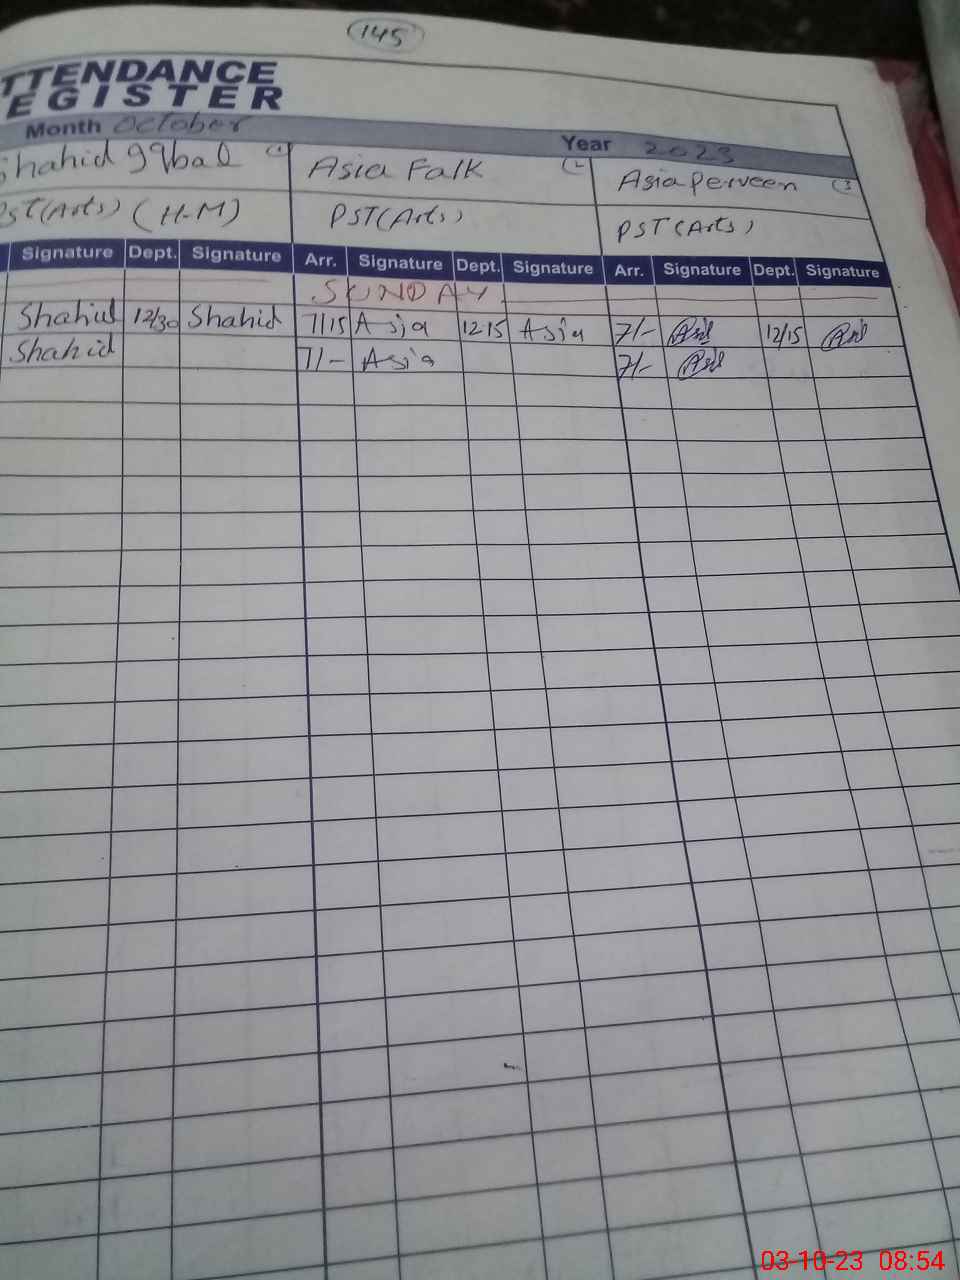 145
TTENDANCE
EGISTER
Month October Year 2023
Shahid Iqbal (1) Asia Falk (2 Asia Perveen (3
PST(Arts) (H-M) PST(Arts) PST(Arts)
Signature Dept. Signature Arr. Signature Dept. Signature Arr. Signature Dept. Signature
SUNDAY
Shahid 12/30 Shahid 7/15 Asia 12:15 Asia 7/- 12/15
Shahid 7/- Asia 7/-
03-10-23 08:54